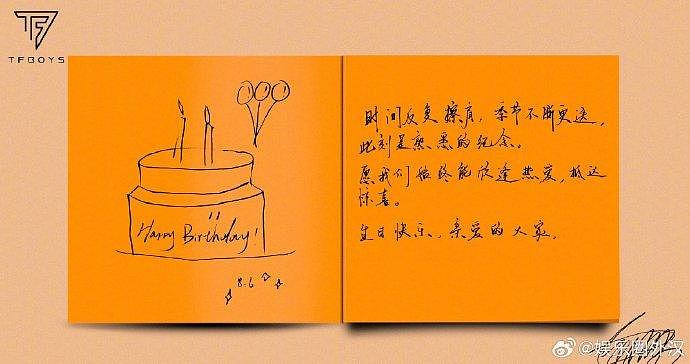 TFBOYS
Happy Birthday!
8.6
时间反复擦肩，季节不断更迭，
此刻是熟悉的纪念。
愿我们始终能欣逢热爱，抵达
惊喜。
生日快乐，亲爱的大家。
@娱乐圈外汉